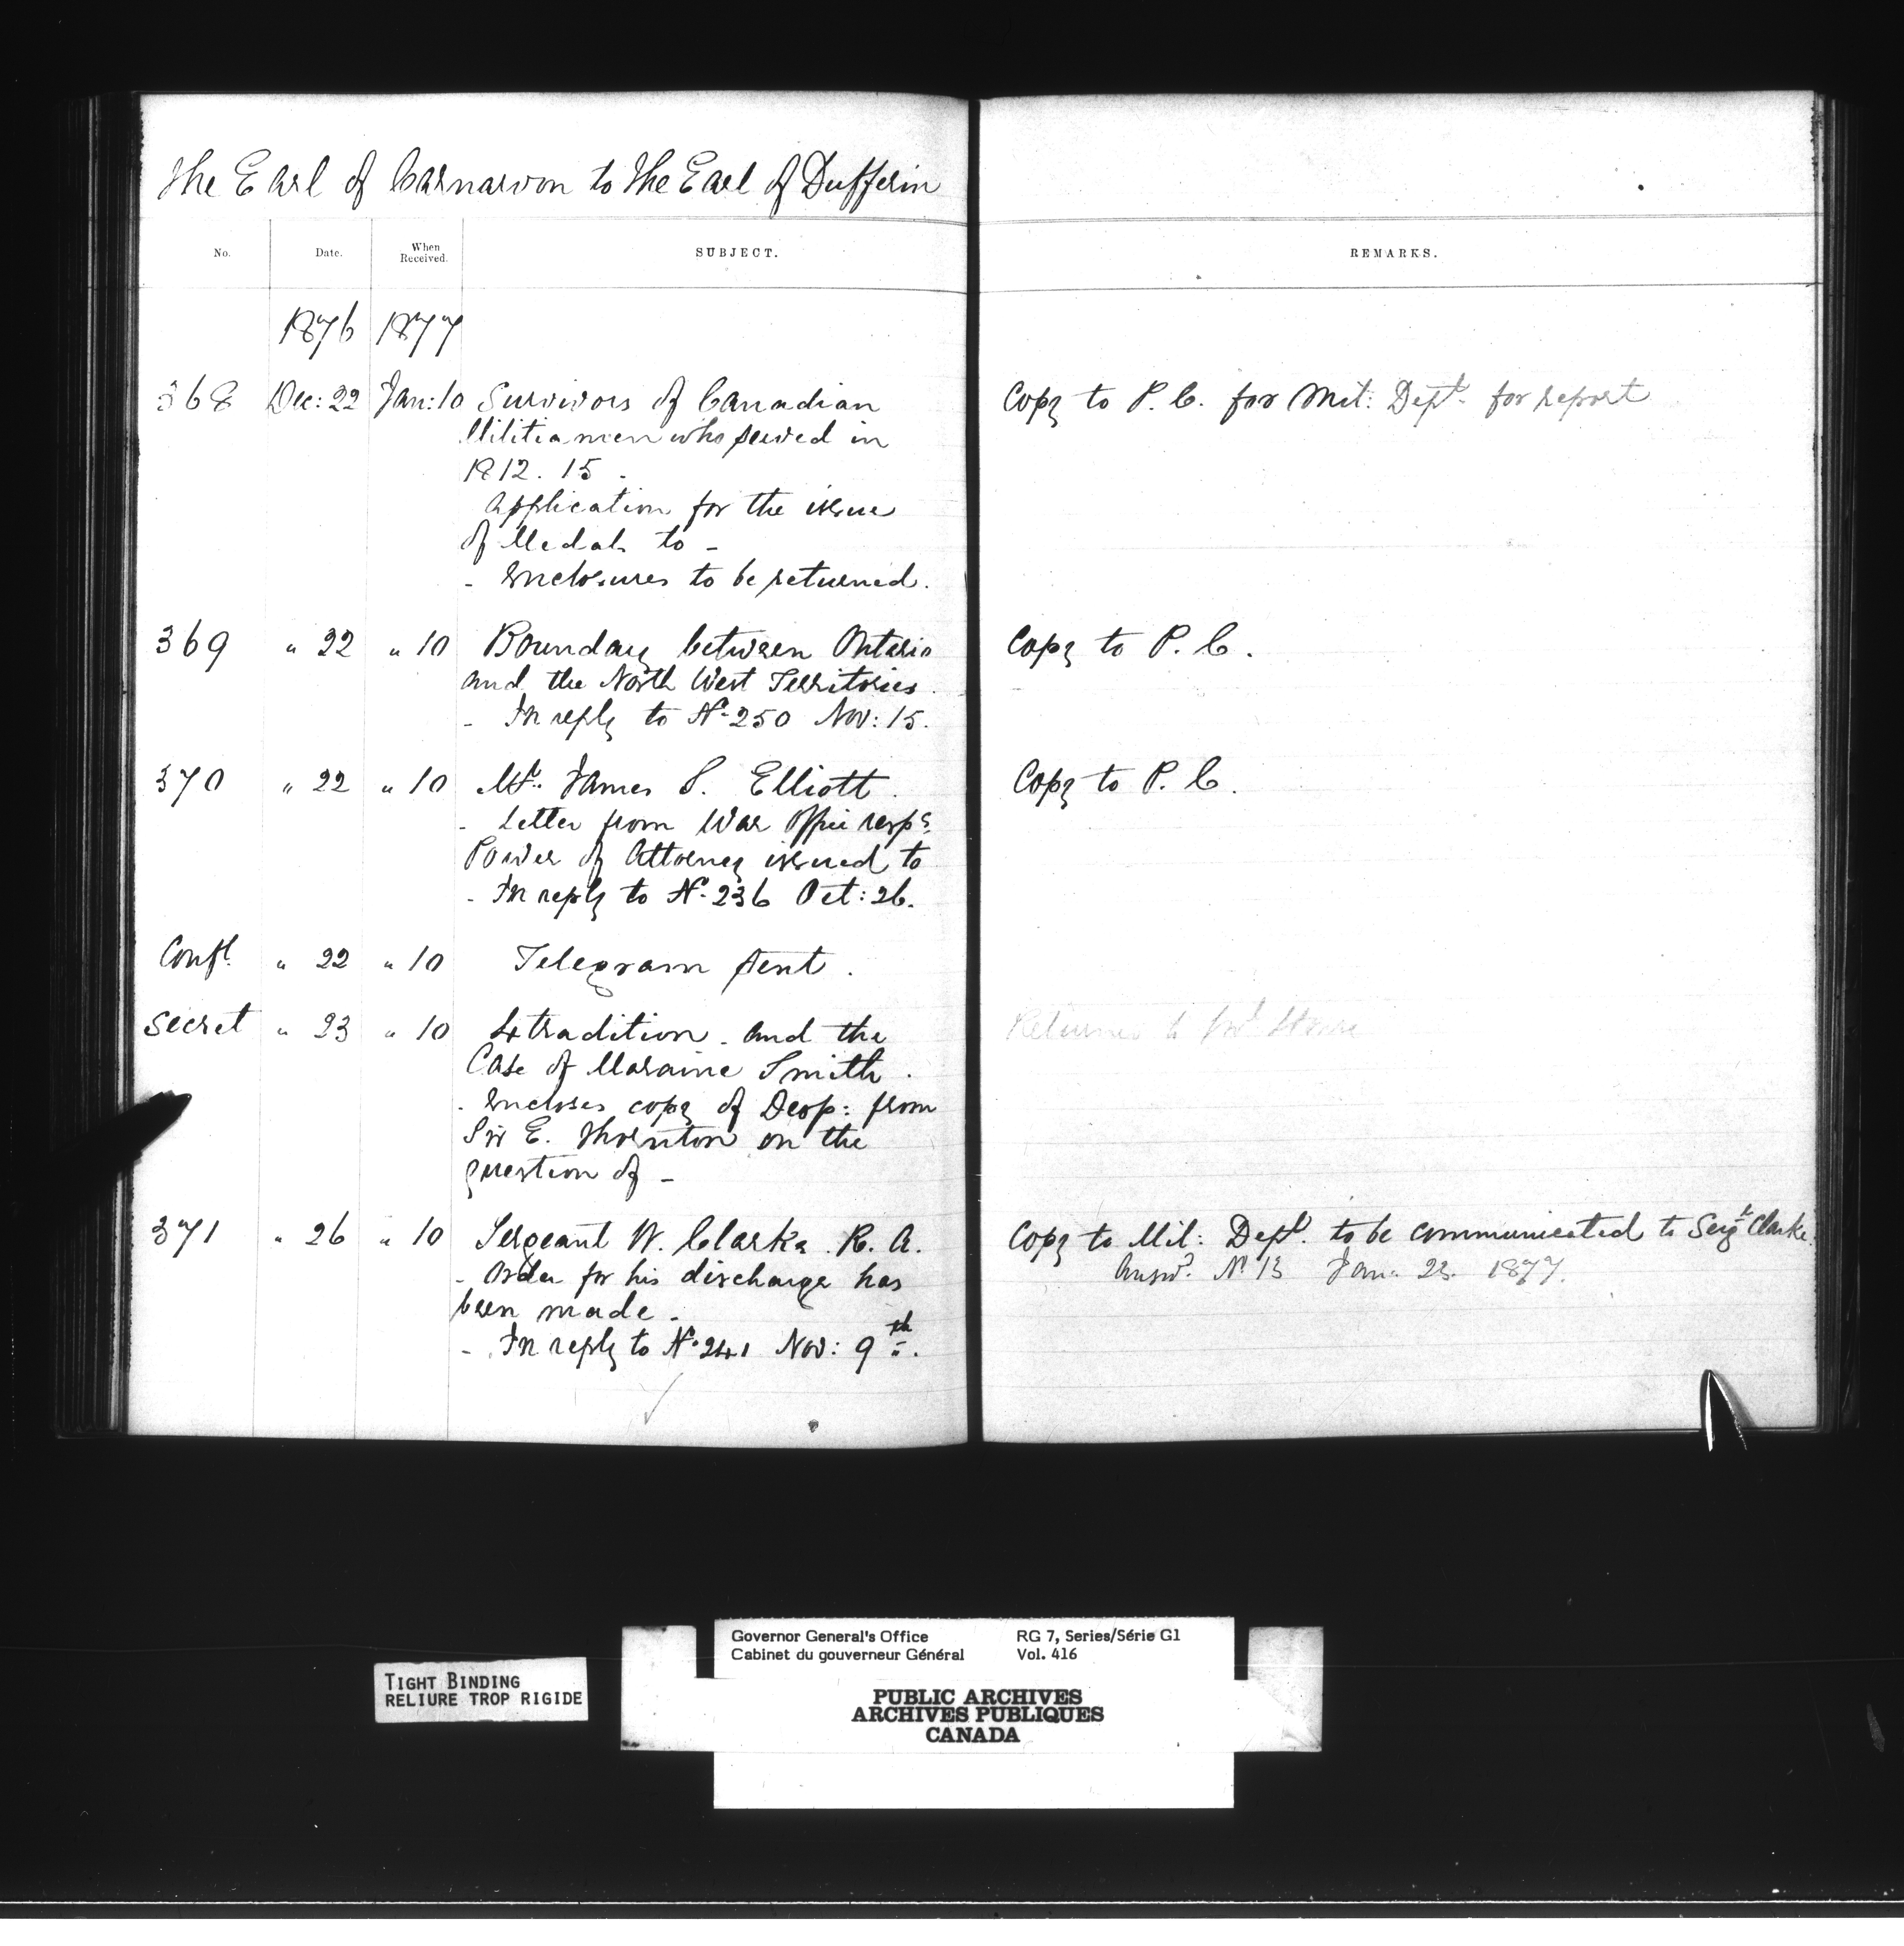 The Earl of Carnarvon to The Earl of Dufferin
No. Date. When Received. SUBJECT. REMARKS.
1876 1877
368 Dec: 22 Jan: 10 Survivors of Canadian Copy to P. C. for Mil: Dept. for report
Militiamen who served in
1812. 15.
Application for the issue
of Medals to -
- Enclosures to be returned.
369 " 22 " 10 Boundary between Ontario Copy to P. C.
and the North West Territories.
- In reply to No 250 Nov: 15.
370 " 22 " 10 Mr. James S. Elliott. Copy to P. C.
- Letter from War Office respg.
Power of Attorney issued to
- In reply to No 236 Oct: 26.
Confl. " 22 " 10 Telegram sent.
Secret " 23 " 10 Extradition. and the Returned to
Case of Maraine Smith.
- Encloses copy of Desp: from
Sir E. Thornton on the
question of -
371 " 26 " 10 Sergeant W. Clarke. R. A. Copy to Mil: Dept. to be communicated to Sergt Clarke.
- Order for his discharge has Answd. No 13 Jan. 23. 1877.
been made.
- In reply to No 241 Nov: 9th.
TIGHT BINDING
RELIURE TROP RIGIDE
Governor General's Office RG 7, Series/Série G1
Cabinet du gouverneur Général Vol. 416
PUBLIC ARCHIVES
ARCHIVES PUBLIQUES
CANADA